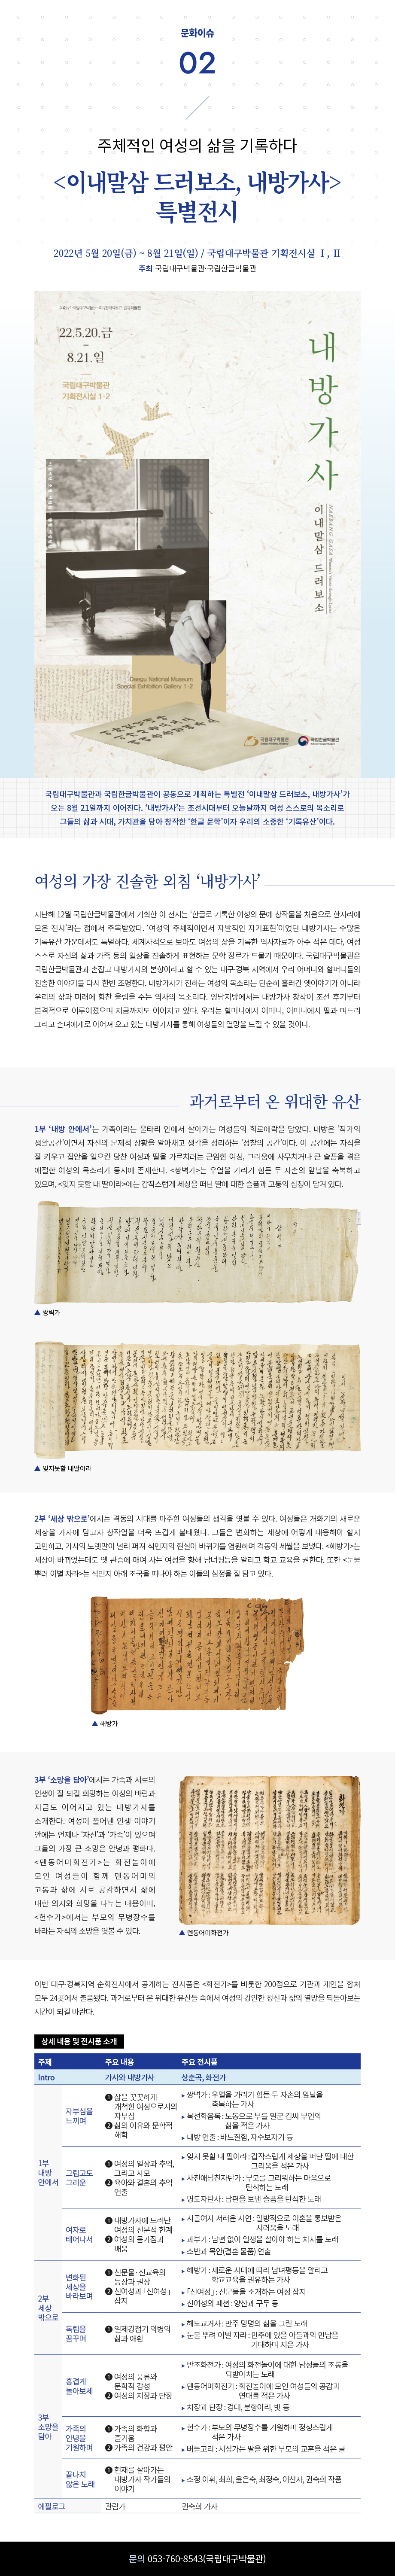 문화이슈
02
주체적인 여성의 삶을 기록하다
<이내말삼 드러보소, 내방가사>
특별전시
2022년 5월 20일(금) ~ 8월 21일(일) / 국립대구박물관 기획전시실 Ⅰ, Ⅱ
주최 국립대구박물관·국립한글박물관
22.5.20.금
–
8.21.일
국립대구박물관
기획전시실 1·2
내방가사
이내말삼 드러보소
Daegu National Museum
Special Exhibition Gallery 1-2
국립대구박물관
국립한글박물관
국립대구박물관과 국립한글박물관이 공동으로 개최하는 특별전 ‘이내말삼 드러보소, 내방가사’가
오는 8월 21일까지 이어진다. ‘내방가사’는 조선시대부터 오늘날까지 여성 스스로의 목소리로
그들의 삶과 시대, 가치관을 담아 창작한 ‘한글 문학’이자 우리의 소중한 ‘기록유산’이다.
여성의 가장 진솔한 외침 ‘내방가사’
지난해 12월 국립한글박물관에서 기획한 이 전시는 ‘한글로 기록한 여성의 문예 창작물을 처음으로 한자리에
모은 전시’라는 점에서 주목받았다. ‘여성의 주체적이면서 자발적인 자기표현’이었던 내방가사는 수많은
기록유산 가운데서도 특별하다. 세계사적으로 보아도 여성의 삶을 기록한 역사자료가 아주 적은 데다, 여성
스스로 자신의 삶과 가족 등의 일상을 진솔하게 표현하는 문학 장르가 드물기 때문이다. 국립대구박물관은
국립한글박물관과 손잡고 내방가사의 본향이라고 할 수 있는 대구·경북 지역에서 우리 어머니와 할머니들의
진솔한 이야기를 다시 한번 조명한다. 내방가사가 전하는 여성의 목소리는 단순히 흘러간 옛이야기가 아니라
우리의 삶과 미래에 힘찬 울림을 주는 역사의 목소리다. 영남지방에서는 내방가사 창작이 조선 후기부터
본격적으로 이루어졌으며 지금까지도 이어지고 있다. 우리는 할머니에서 어머니, 어머니에서 딸과 며느리
그리고 손녀에게로 이어져 오고 있는 내방가사를 통해 여성들의 열망을 느낄 수 있을 것이다.
과거로부터 온 위대한 유산
1부 ‘내방 안에서’는 가족이라는 울타리 안에서 살아가는 여성들의 희로애락을 담았다. 내방은 ‘작가의
생활공간’이면서 자신의 문제적 상황을 알아채고 생각을 정리하는 ‘성찰의 공간’이다. 이 공간에는 자식을
잘 키우고 집안을 일으킨 당찬 여성과 딸을 가르치려는 근엄한 여성, 그리움에 사무치거나 큰 슬픔을 겪은
애절한 여성의 목소리가 동시에 존재한다. <쌍벽가>는 우열을 가리기 힘든 두 자손의 앞날을 축복하고
있으며, <잊지 못할 내 딸이라>에는 갑작스럽게 세상을 떠난 딸에 대한 슬픔과 고통의 심정이 담겨 있다.
▲ 쌍벽가
▲ 잊지못할 내딸이라
2부 ‘세상 밖으로’에서는 격동의 시대를 마주한 여성들의 생각을 엿볼 수 있다. 여성들은 개화기의 새로운
세상을 가사에 담고자 창작열을 더욱 뜨겁게 불태웠다. 그들은 변화하는 세상에 어떻게 대응해야 할지
고민하고, 가사의 노랫말이 널리 퍼져 식민지의 현실이 바뀌기를 염원하며 격동의 세월을 보냈다. <해방가>는
세상이 바뀌었는데도 옛 관습에 매여 사는 여성을 향해 남녀평등을 알리고 학교 교육을 권한다. 또한 <눈물
뿌려 이별 자라>는 식민지 아래 조국을 떠나야 하는 이들의 심정을 잘 담고 있다.
▲ 해방가
3부 ‘소망을 담아’에서는 가족과 서로의
인생이 잘 되길 희망하는 여성의 바람과
지금도 이어지고 있는 내방가사를
소개한다. 여성이 풀어낸 인생 이야기
안에는 언제나 ‘자신’과 ‘가족’이 있으며
그들의 가장 큰 소망은 안녕과 평화다.
<덴동어미화전가>는 화전놀이에
모인 여성들이 함께 덴동어미의
고통과 삶에 서로 공감하면서 삶에
대한 의지와 희망을 나누는 내용이며,
<헌수가>에서는 부모의 무병장수를
바라는 자식의 소망을 엿볼 수 있다.
▲ 덴동어미화전가
이번 대구·경북지역 순회전시에서 공개하는 전시품은 <화전가>를 비롯한 200점으로 기관과 개인을 합쳐
모두 24곳에서 출품됐다. 과거로부터 온 위대한 유산들 속에서 여성의 강인한 정신과 삶의 열망을 되돌아보는
시간이 되길 바란다.
상세 내용 및 전시품 소개
주제 주요 내용 주요 전시품
Intro 가사와 내방가사 상춘곡, 화전가
1부
내방
안에서
자부심을
느끼며
❶ 삶을 꿋꿋하게
개척한 여성으로서의
자부심
❷ 삶의 여유와 문학적
해학
▸ 쌍벽가 : 우열을 가리기 힘든 두 자손의 앞날을
축복하는 가사
▸ 복선화음록 : 노동으로 부를 일군 김씨 부인의
삶을 적은 가사
▸ 내방 연출 : 바느질함, 자수보자기 등
그립고도
그리운
❶ 여성의 일상과 추억,
그리고 사모
❷ 육아와 결혼의 추억
연출
▸ 잊지 못할 내 딸이라 : 갑작스럽게 세상을 떠난 딸에 대한
그리움을 적은 가사
▸ 사친애남칭자탄가 : 부모를 그리워하는 마음으로
탄식하는 노래
▸ 명도자탄사 : 남편을 보낸 슬픔을 탄식한 노래
여자로
태어나서
❶ 내방가사에 드러난
여성의 신분적 한계
❷ 여성의 몸가짐과
배움
▸ 시골여자 서러운 사연 : 일방적으로 이혼을 통보받은
서러움을 노래
▸ 과부가 : 남편 없이 일생을 살아야 하는 처지를 노래
▸ 소반과 목안(결혼 물품) 연출
2부
세상
밖으로
변화된
세상을
바라보며
❶ 신문물·신교육의
등장과 권장
❷ 신여성과 「신여성」
잡지
▸ 해방가 : 새로운 시대에 따라 남녀평등을 알리고
학교교육을 권유하는 가사
▸ 「신여성」 : 신문물을 소개하는 여성 잡지
▸ 신여성의 패션 : 양산과 구두 등
독립을
꿈꾸며
❶ 일제강점기 의병의
삶과 애환
▸ 해도교거사 : 만주 망명의 삶을 그린 노래
▸ 눈물 뿌려 이별 자라 : 만주에 있을 아들과의 만남을
기대하며 지은 가사
3부
소망을
담아
흥겹게
놀아보세
❶ 여성의 풍류와
문학적 감성
❷ 여성의 치장과 단장
▸ 반조화전가 : 여성의 화전놀이에 대한 남성들의 조롱을
되받아치는 노래
▸ 덴동어미화전가 : 화전놀이에 모인 여성들의 공감과
연대를 적은 가사
▸ 치장과 단장 : 경대, 분항아리, 빗 등
가족의
안녕을
기원하며
❶ 가족의 화합과
즐거움
❷ 가족의 건강과 평안
▸ 헌수가 : 부모의 무병장수를 기원하며 정성스럽게
적은 가사
▸ 버들고리 : 시집가는 딸을 위한 부모의 교훈을 적은 글
끝나지
않은 노래
❶ 현재를 살아가는
내방가사 작가들의
이야기
▸ 소정 이휘, 최희, 윤은숙, 최정숙, 이선자, 권숙희 작품
에필로그 관람가 권숙희 가사
문의 053-760-8543(국립대구박물관)